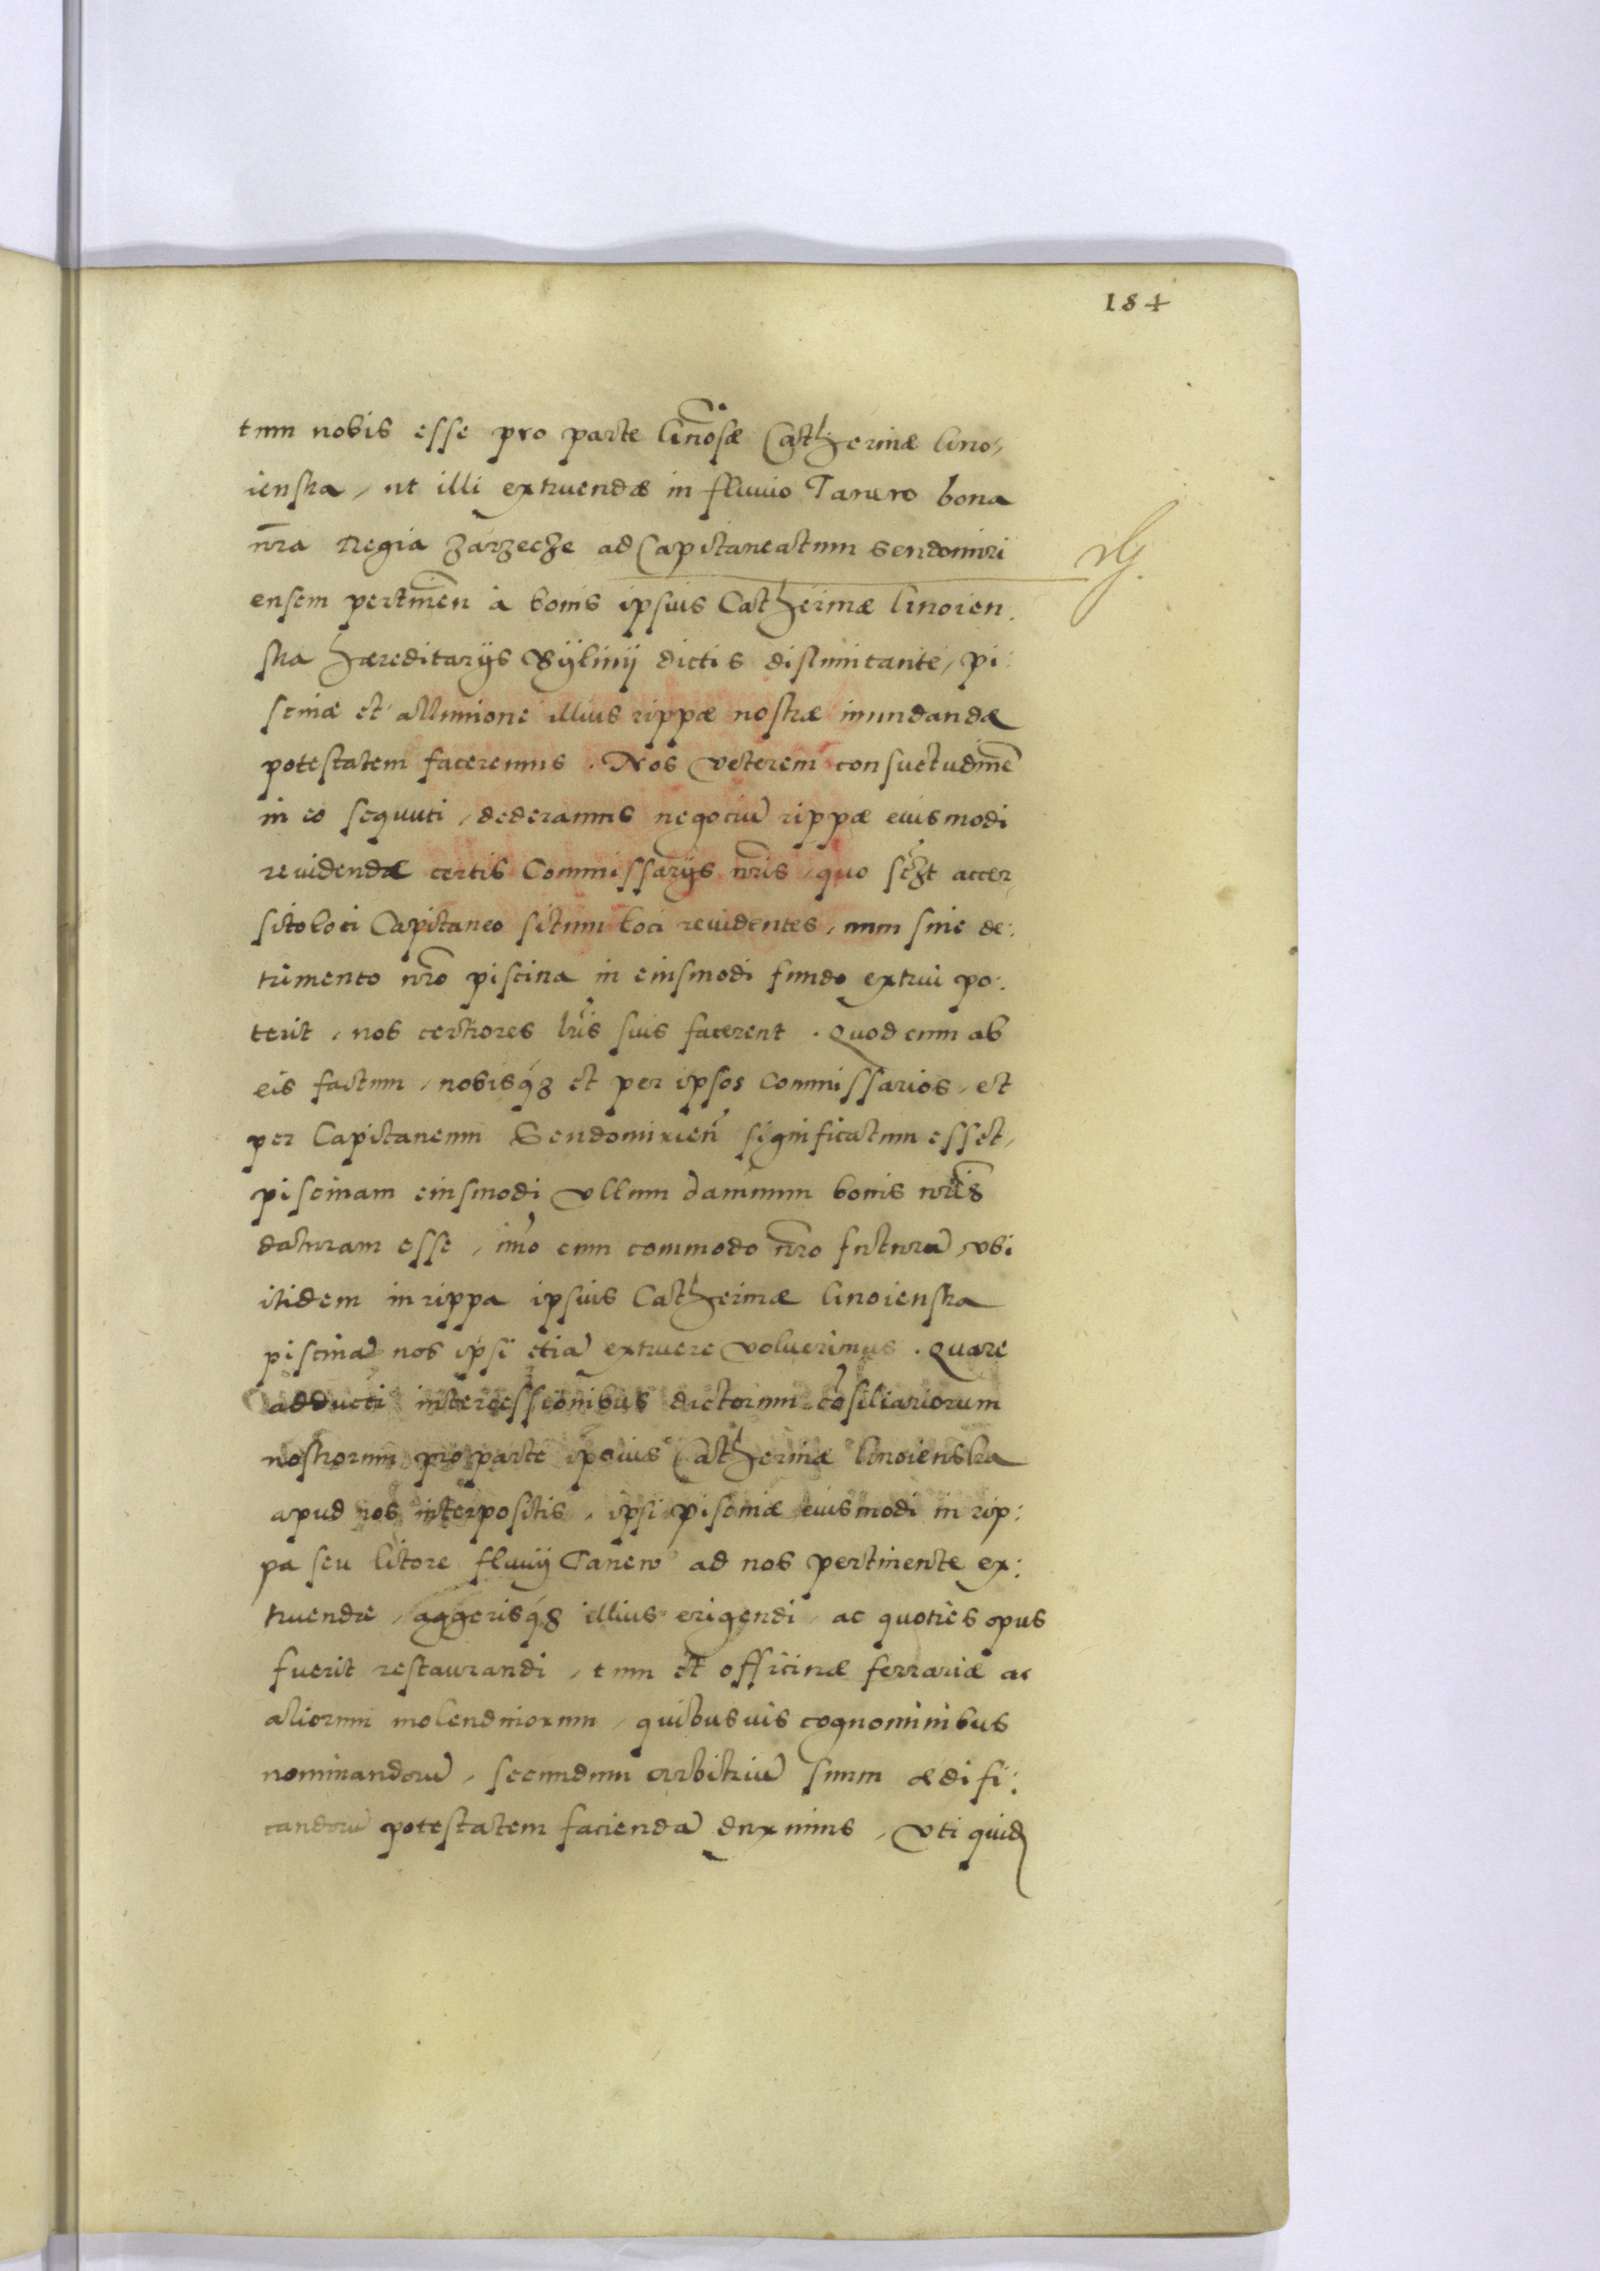 184
tum nobis esse pro parte Gn̄osæ Catherinæ Gno-
ienska, ut illi extruendæ in fluuio Tanuro bona
nr̄a Regia Zarzecze ad Capitaneatum Sendomiri
ensem pertineñ à bonis ipsius Catherinæ Gnoien:
ska hæreditarijs Bylinij dictis disLimitante, pi:
scinæ et alluuione illius rippæ nostræ inundandæ
potestatem faceremus. Nos veterem consuetudinē
in eo sequuti, dederamus negociū rippæ eiusmodi
reuidendæ certis Commissarijs nr̄is, quo sczt accer,
sito loci Capitaneo situm loci reuidentes, num sine de:
trimento nr̄o piscina in eiusmodi fundo extrui po:
terit, nos certiores lr̄is suis facerent. Quod cum ab
eis factum, nobisqȝ et per ipsos Commissarios, et
per Capitaneum Sendomirieñ significatum esset,
piscinam eiusmodi vllum damnum bonis nr̄is
daturam esse, imo cum commodo nr̄o futurā, vbi
itidem in rippa ipsius Catherinæ Gnoienska
piscinā nos ipsi etiā extruere voluerimus. Quare
adducti intercessionibus dictorum cōsiliariorum
nostrorum pro parte ipsius Catherinæ Gnoienska
apud nos interpositis, ipsi piscinæ eiusmodi in rip:
pa seu litore fluuij Tanew ad nos pertinente ex:
truendæ, aggerisqȝ illius erigendi, ac quoties opus
fuerit restaurandi, tum et officinæ ferrariæ ac
aliorum molendinorum, quibusuis cognominibus
nominandorū, secundum arbitriū suum ædifi:
candorū potestatem faciendā duximus, vti quid